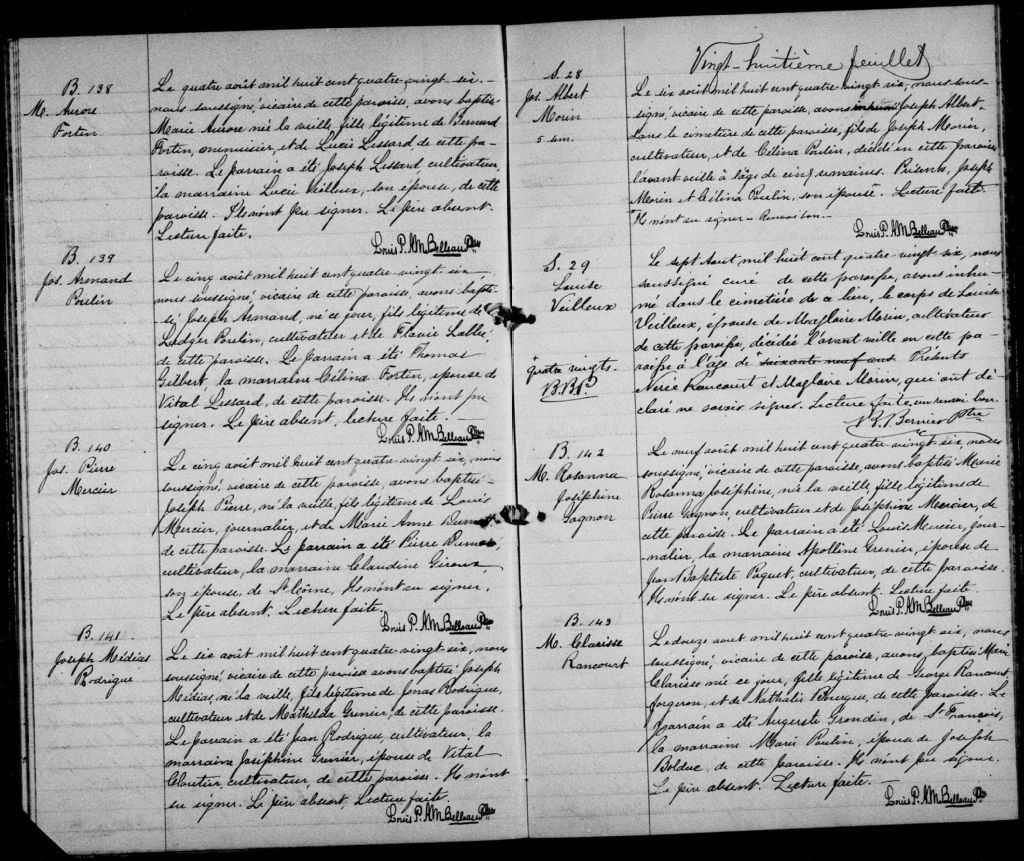 B. 138
M. Aurore
Fortin
Le quatre août mil huit cent quatre-vingt six.
nous soussigné, vicaire de cette paroisse, avons baptisé
Marie Aurore né la veille, fille légitime de Bernard
Fortin, menuisier, et de Lucie Lessard de cette pa-
roisse. Le parrain a été Joseph Lessard, cultivateur,
la marraine Lucie Veilleux, son épouse, de cette
paroisse. Ils n'ont pu signer. Le père absent.
Lecture faite.
Louis P. A. M. Belleau Ptre
B. 139
Jos. Armand
Poulin
Le cinq août mil huit cent quatre-vingt six,
nous soussigné, vicaire de cette paroisse, avons bapti-
sé Joseph Armand, né ce jour, fils légitime de
Ledger Poulin, cultivateur et de Flavie Labbé,
de cette paroisse. Le parrain a été Thomas
Gilbert, la marraine Célina Fortin, épouse de
Vital Lessard, de cette paroisse. Ils n'ont pu
signer. Le père absent, lecture faite.
Louis P. A. M. Belleau Ptre
B. 140
Jos. Pierre
Mercier
Le cinq août mil huit cent quatre-vingt six, nous
soussigné, vicaire de cette paroisse, avons baptisé
Joseph Pierre, né la veille, fils légitime de Louis
Mercier, journalier, et de Marie Anne Dumas,
de cette paroisse. Le parrain a été Pierre Dumas,
cultivateur, la marraine Claudine Giroux,
son épouse, de St Côme, Ils n'ont su signer.
Le père absent. Lecture faite.
Louis P. A. M. Belleau Ptre
B. 141
Joseph Médias
Rodrigue
Le six août mil huit cent quatre-vingt six, nous
soussigné, vicaire de cette paroisse avons baptisé Joseph
Médias, né la veille, fils légitime de Jonas Rodrigue,
cultivateur et de Mathilda Grenier, de cette paroisse.
Le parrain a été Jean Rodrigue, cultivateur, la
marraine Joséphine Grenier, épouse de Vital
Cloutier, cultivateur de cette paroisse. Ils n'ont
su signer. Le père absent, Lecture faite.
Louis P. A. M. Belleau Ptre
Vingt-huitième feuillet
S. 28
Jos. Albert
Morin
5 sem.
Le six août mil huit cent quatre-vingt six, nous sous-
signé, vicaire de cette paroisse, avons inhumé Joseph Albert
dans le cimetière de cette paroisse, fils de Joseph Morin,
cultivateur, et de Célina Poulin, décédé en cette paroisse
l'avant veille à l'âge de cinq semaines. Présents, Joseph
Morin et Célina Poulin, son épouse. Lecture faite.
Ils n'ont su signer – Renvoi bon. –
Louis P. A. M. Belleau Ptre
S. 29
Louise
Veilleux
quatre vingts.
B. B. P.
Le sept Aout mil huit cent quatre-vingt six, nous
soussigné curé de cette paroisse, avons inhu-
mé dans le cimetière de ce lieu, le corps de Louise
Veilleux, épouse de Magloire Morin, cultivateur
de cette paroisse, décédée l'avant veille en cette pa-
roisse à l'âge de soixante neuf ans Présents
Nérée Rancourt et Magloire Morin, qui ont dé-
claré ne savoir signer. Lecture faite un renvoi bon.
Bernier Ptre
B. 142
M. Rosanna
Joséphine
Gagnon
Le neuf août mil huit cent quatre-vingt six, nous
soussigné, vicaire de cette paroisse, avons baptisé Marie
Rosanna Joséphine, née la veille, fille légitime de
Pierre Gagnon, cultivateur et de Joséphine Mercier, de
cette paroisse. Le parrain a été Louis Mercier, jour-
nalier, la marraine Apolline Grenier, épouse de
Jean Baptiste Paquet, cultivateur, de cette paroisse.
Ils n'ont su signer. Le père absent. Lecture faite
Louis P. A. M. Belleau Ptre
B. 143
M. Clarisse
Rancourt
Le douze août mil huit cent quatre-vingt six, nous
soussigné, vicaire de cette paroisse, avons, baptisé Marie
Clarisse née ce jour, fille légitime de George Rancourt,
forgeron, et de Nathalie Bourque, de cette paroisse. Le
parrain a été Auguste Grondin, de St François,
la marraine Marie Poulin, épouse de Joseph
Bolduc, de cette paroisse. Ils n'ont pu signer.
Le père absent. Lecture faite. –
Louis P. A. M. Belleau Ptre